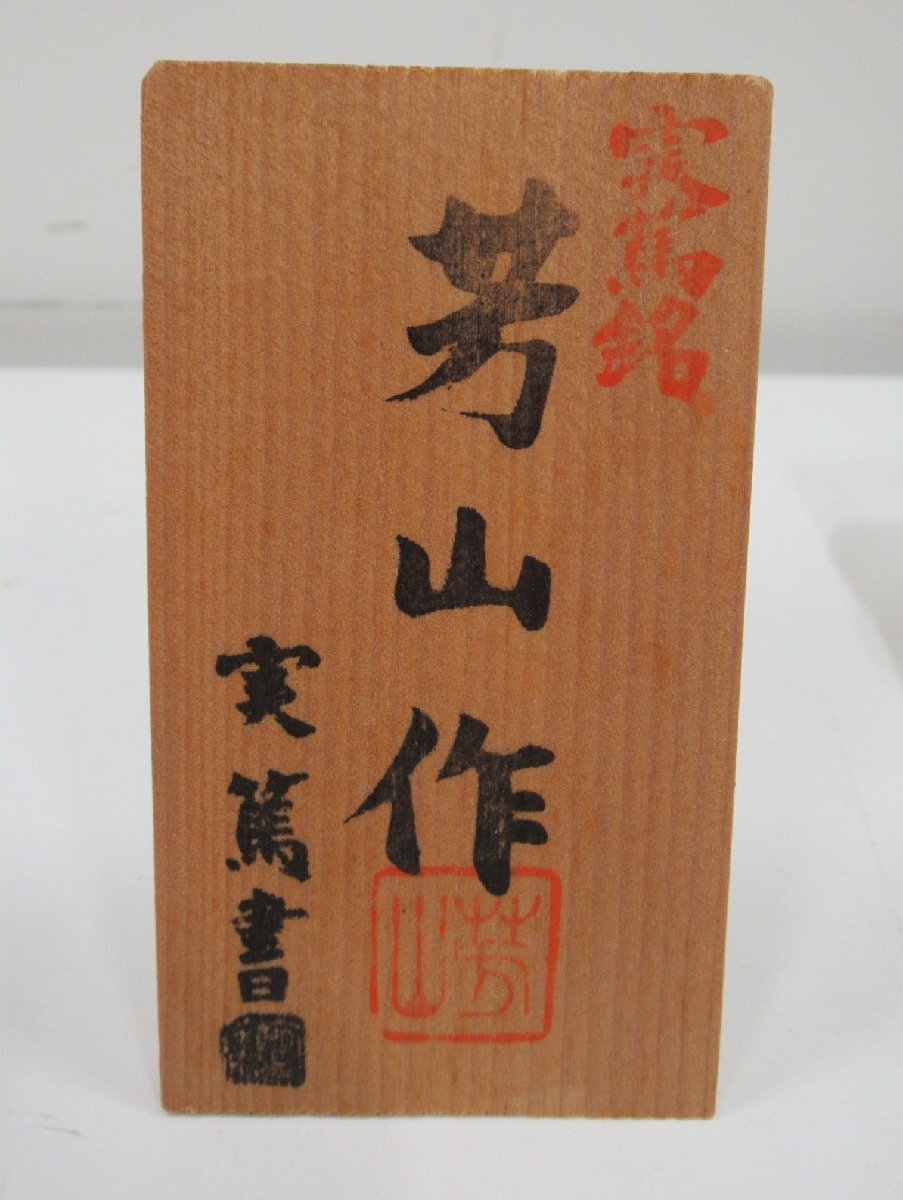 実篤銘
芳山作
芳山
実篤書